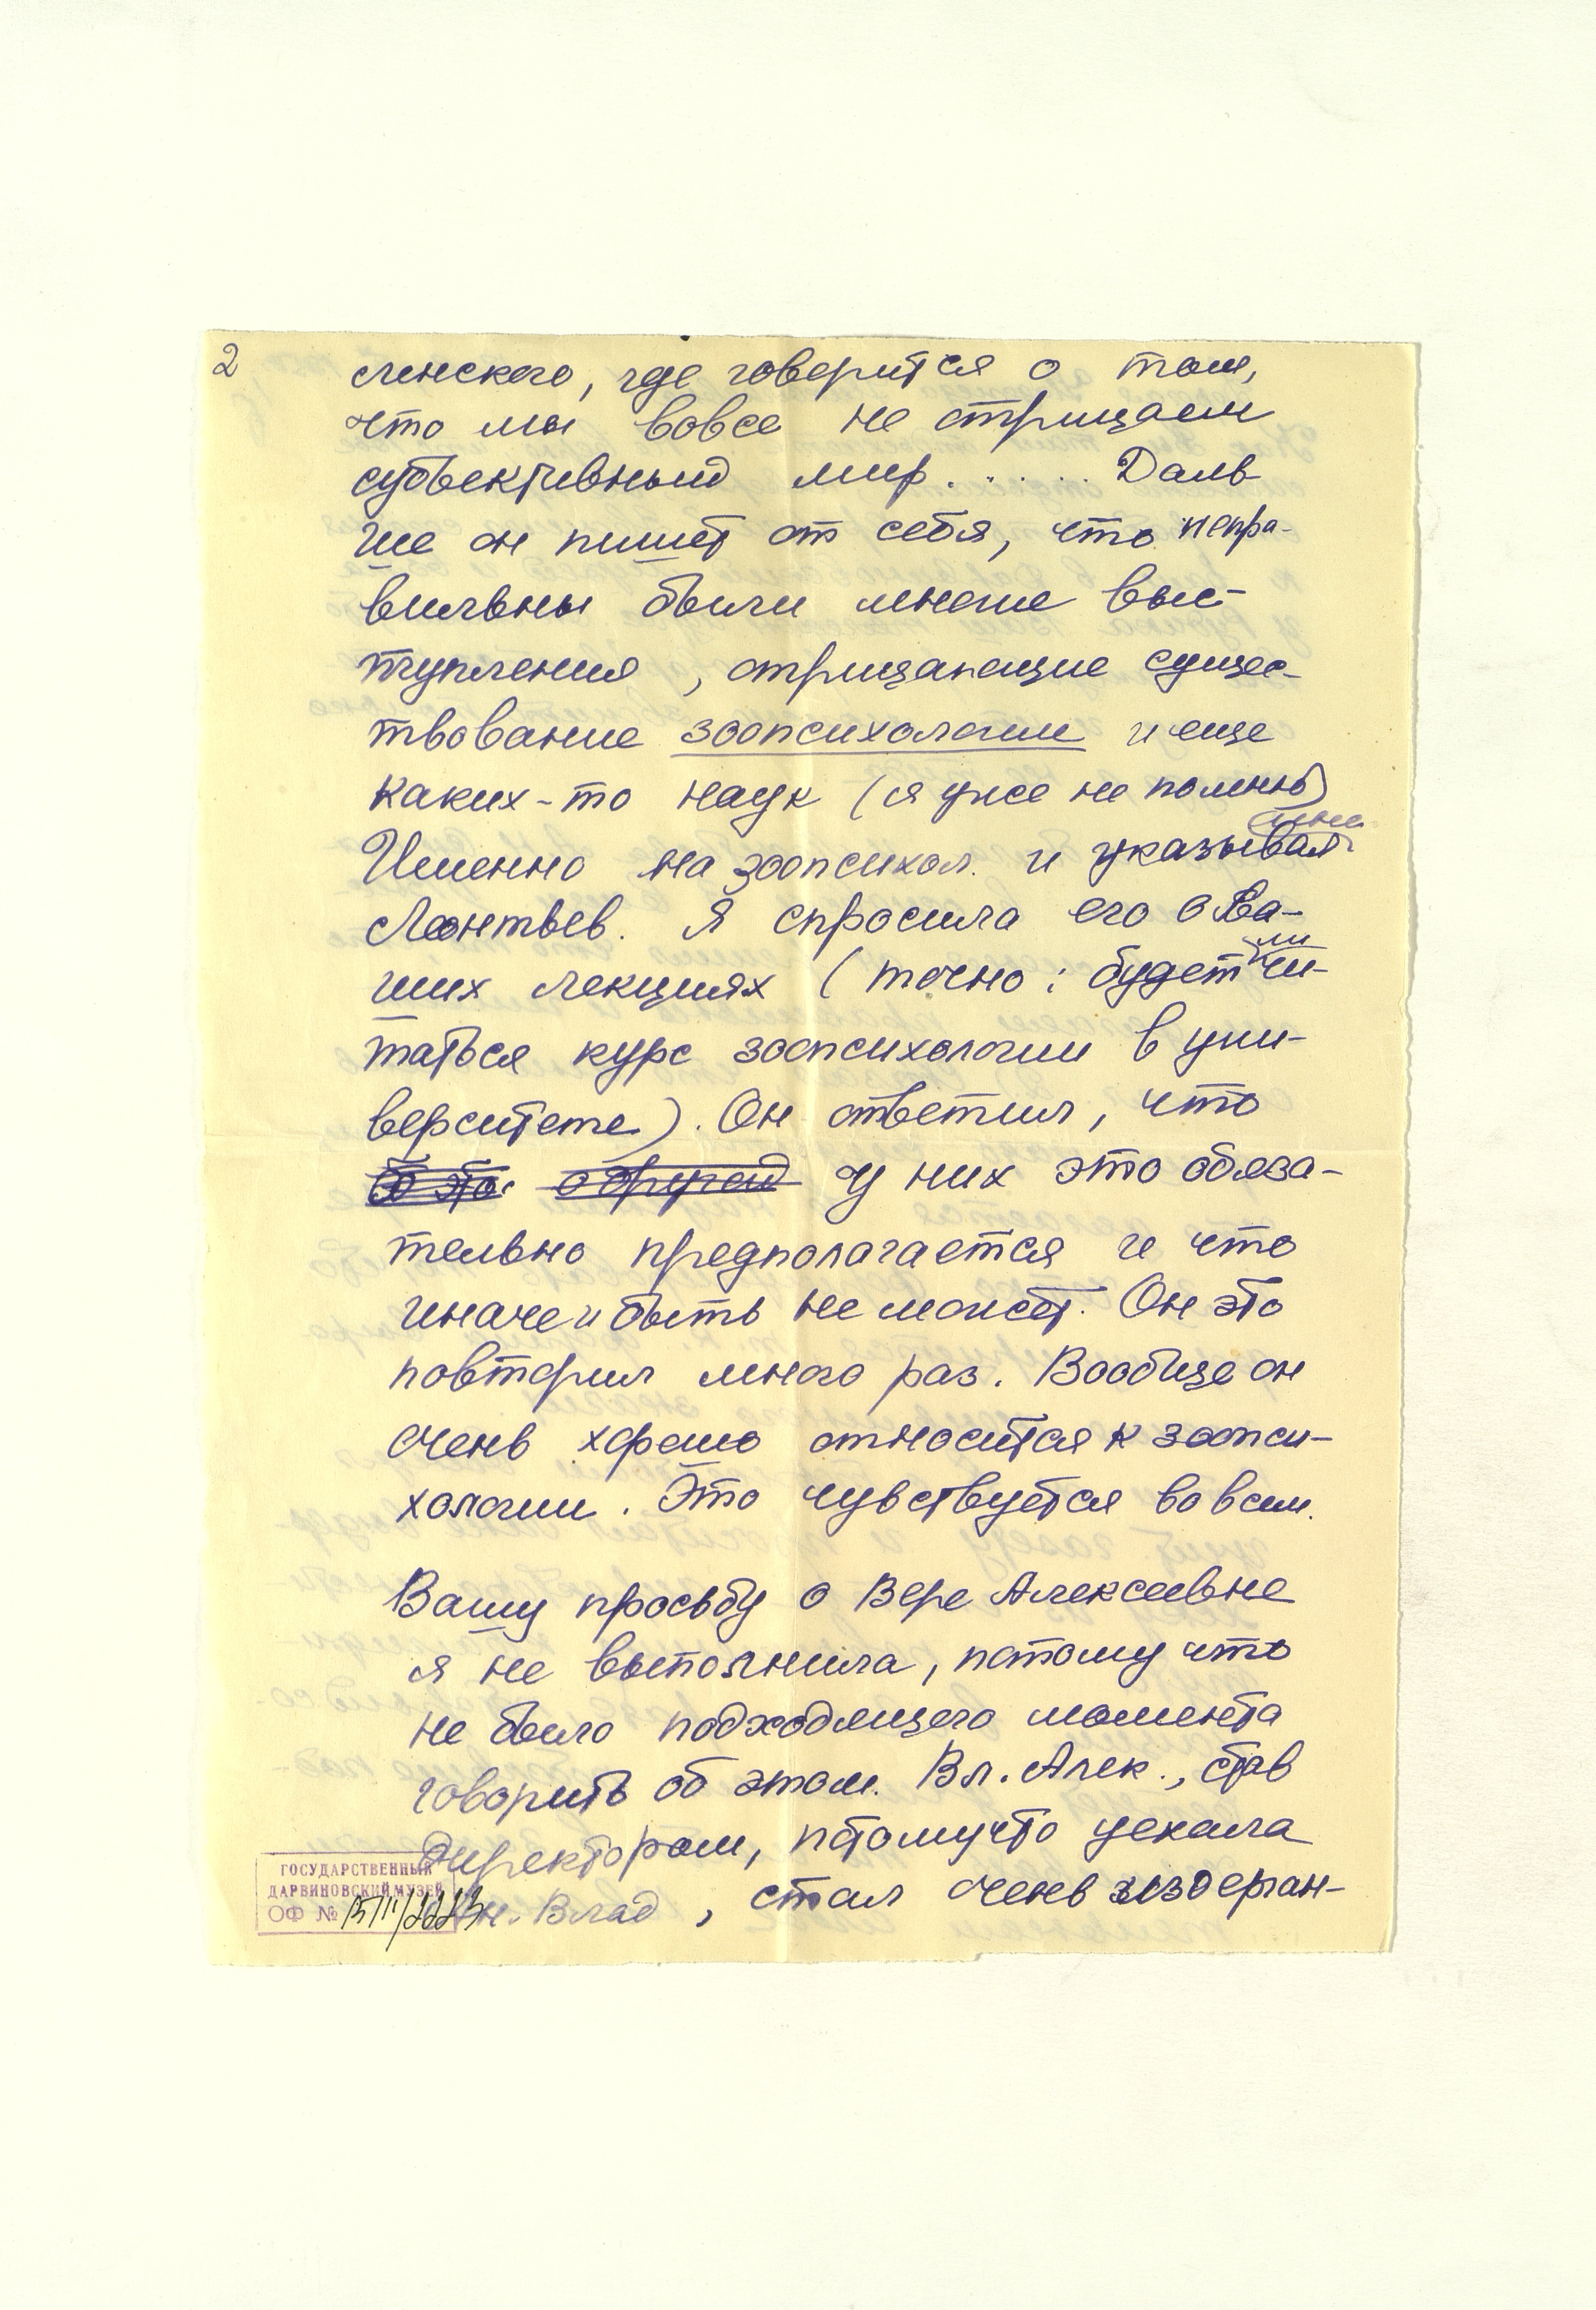 2
ленского, где говорится о том,
что мы вовсе не отрицаем
субъективный мир..... Даль
ше он пишет от себя, что непра-
вильны были многие выс-
тупления, отрицающие сущес-
твование зоопсихологии и еще
каких-то наук (я уже не помню)
мне
Именно на зоопсихол. и указывал
Леонтьев. Я спросила его о Ва-
ли
ших лекциях (точно: будет чи-
таться курс зоопсихологии в уни-
верситете). Он ответил, что
у них это обяза-
тельно предполагается и что
иначе и быть не может. Он это
повторил много раз. Вообще он
очень хорошо относится к зоопси-
хологии. Это чувствуется во всем.
Вашу просьбу о Вере Алексеевне
я не выполнила, потому что
не было подходящего момента
говорить об этом. Вл. Алек., став
директором, потомучто уехала
Ан. Влад, стал очень издерган-
ГОСУДАРСТВЕННЫЙ
ДАРВИНОВСКИЙ МУЗЕЙ
ОФ №